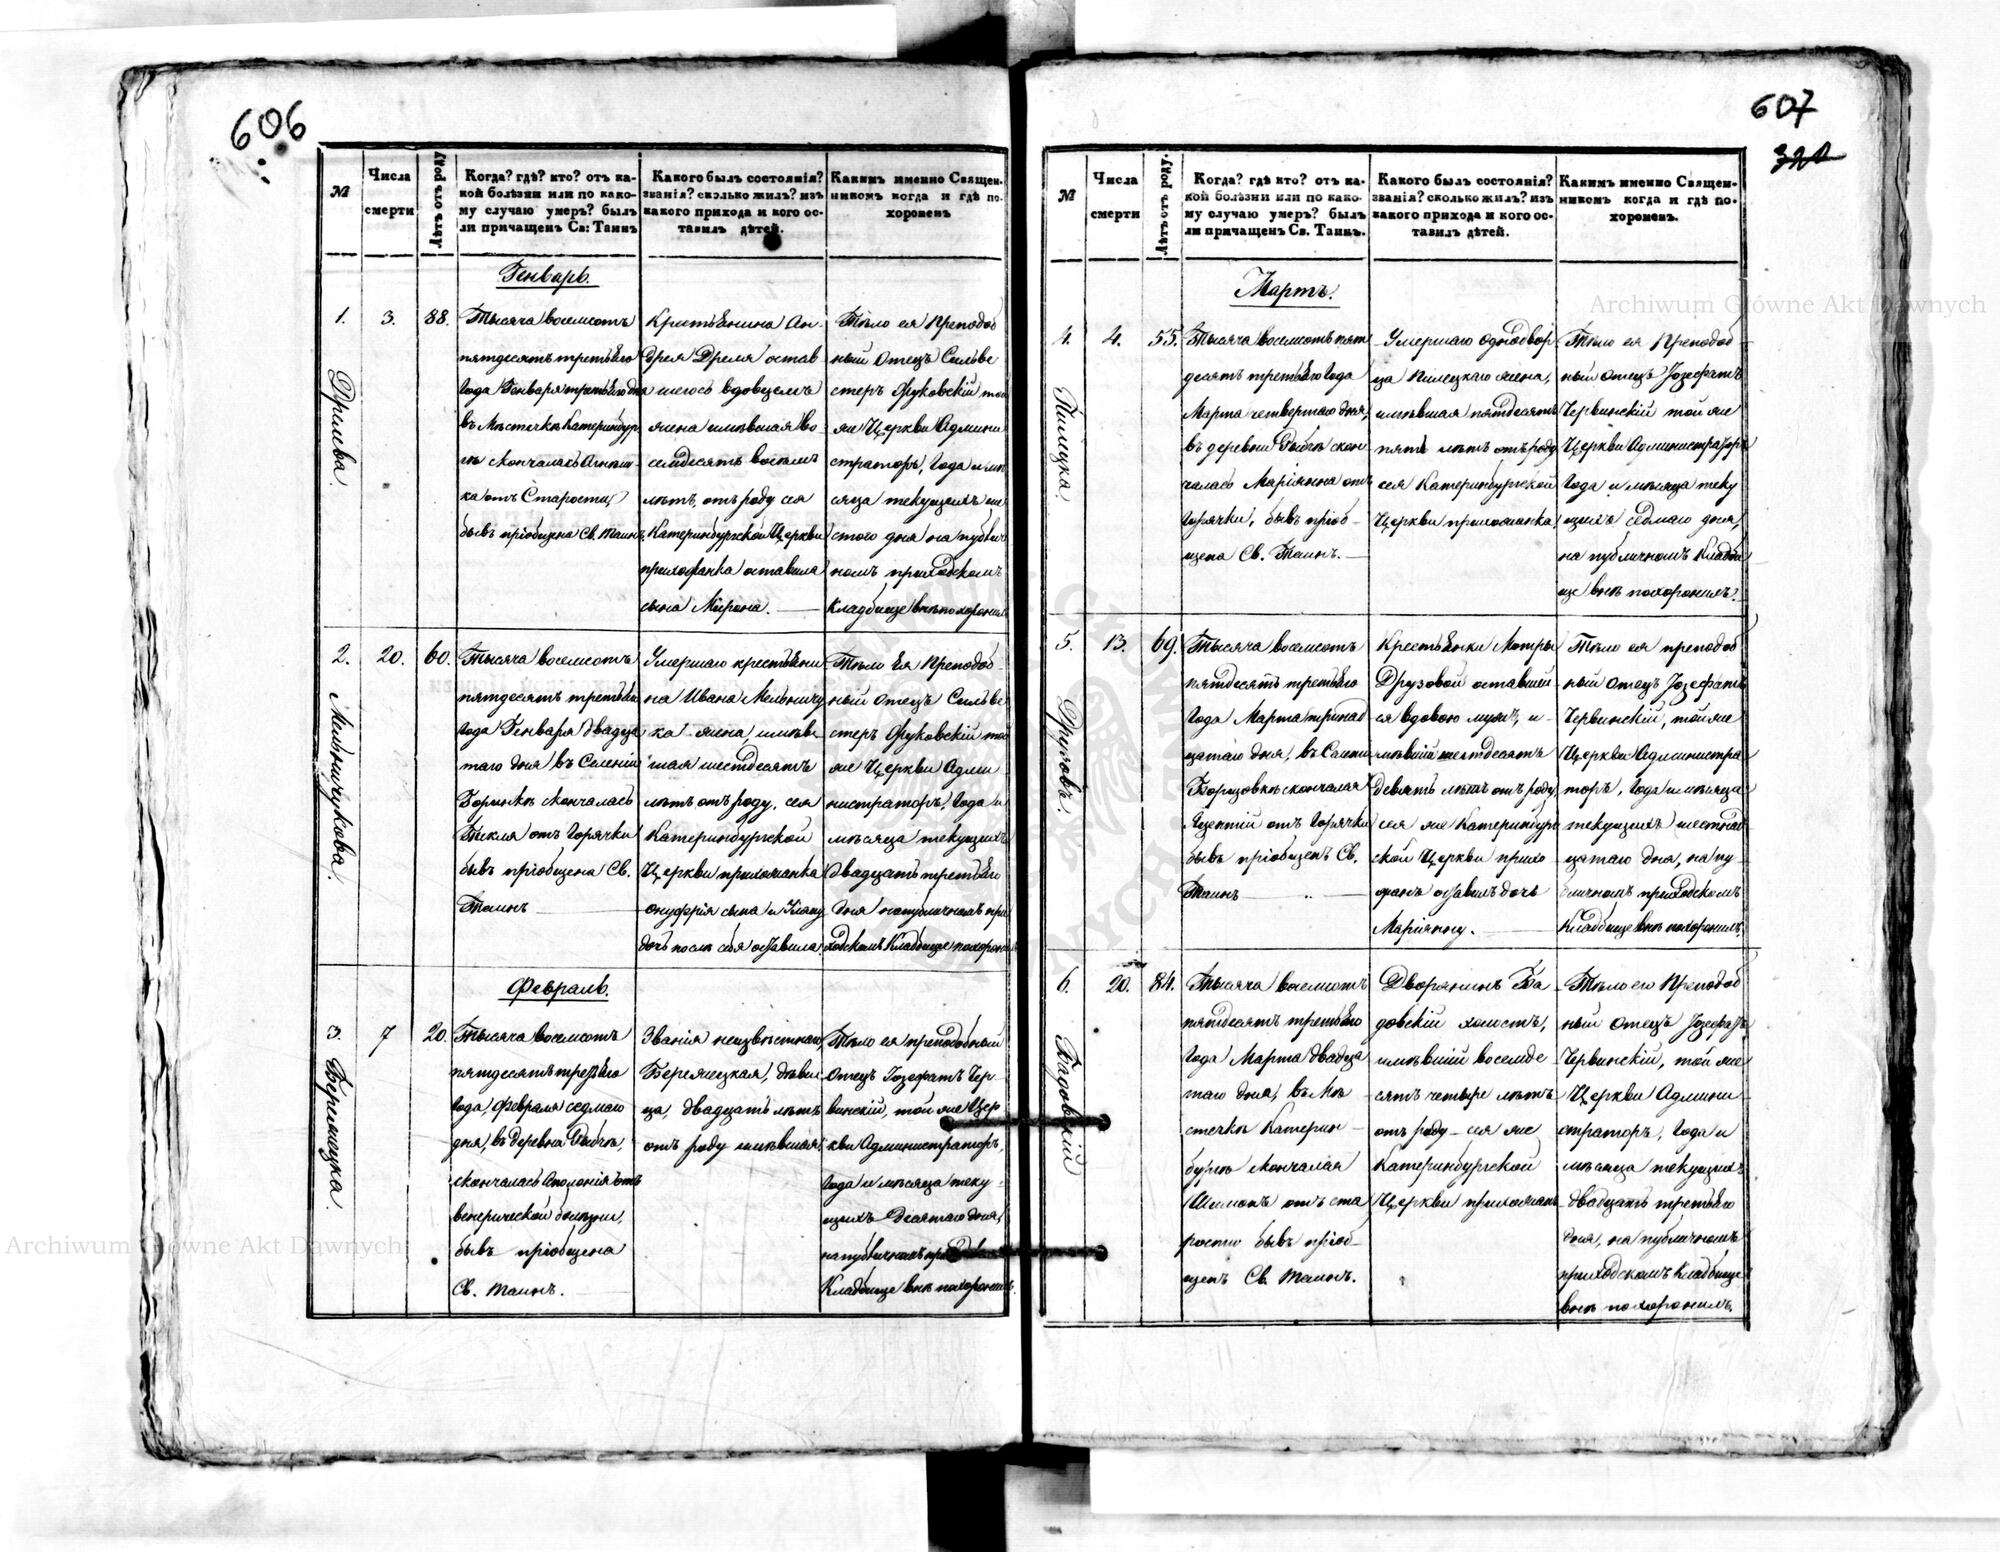 606
№
Числа
смерти
Лѣтъ отъ роду
Когда? гдѣ? кто? отъ ка-
кой болѣзни или по како-
му случаю умеръ? былъ
ли причащенъ Св: Таинъ
Какого былъ состоянія?
званія? сколько жилъ? изъ
какого прихода и кого ос-
тавилъ дѣтей.
Какимъ именно Священ-
никомъ когда и гдѣ по-
хороненъ
Генварь.
1.
3.
88.
Тысяча восемсотъ
пятдесятъ третьяго
года Генваря третьяго дня
въ Мѣстечкѣ Катеринбур
гѣ скончалась
ка отъ Старости,
бывъ пріобщена Св. Таинъ,
Крестьянина Ан-
дрея Дремя остав
шегося вдовцемъ
жена имѣвшая во
семдесятъ восемь
лѣтъ, отъ роду сея
Катеринбургской Церкви
прихожанка оставила
сына Мирона.
Тѣло ея Преподоб
ный Отецъ Сильве
стеръ Жуковскій той
же Церкви Админи
страторъ, года и мѣ
сяца текущихъ ше
стого дня на публич
номъ приходскомъ
Кладбище внѣ похоронилъ
2.
20.
60.
Тысяча восемсотъ
пятдесятъ третьяго
года Генваря двадца
таго дня въ Селеніи
Боринкѣ скончалась
Тѣкля отъ Горячки
бывъ пріобщена Св.
Таинъ
Умершаго крестьяни
на Ивана Мельничу
ка жена, имѣв
шая шестдесятъ
лѣтъ отъ роду, сея
Катеринбургской
Церкви прихожанка
Онуфрія сына и
дочь послѣ себя оставила.
Тѣло Ея Преподоб-
ный Отецъ Сильве
стеръ Жуковскій той
же Церкви Адми
нистраторъ, года и
мѣсяца текущихъ
двадцать третьяго
дня на публичномъ при
ходскомъ Кладбище похоронилъ
Февраль.
3.
7
20.
Тысяча восемсотъ
пятдесятъ третьяго
года, Февраля седмаго
дня, въ деревнѣ Рыбчѣ,
скончалась Аполонія отъ
венерической болѣзни,
бывъ пріобщена
Св. Таинъ.
Званія неизвѣстнаго,
Бережецкая, дѣви
ца, двадцать лѣтъ
отъ роду имѣвшая,
Тѣло ея преподобный
Отецъ Іозефатъ Чер-
винскій, той же Цер
кви Администраторъ,
года и мѣсяца теку-
щихъ Десятаго дня,
на публичномъ приходскомъ
Кладбище внѣ похоронилъ
Дремова.
Мельничукова.
Бережецка.
607
321
№
Числа
смерти
Лѣтъ отъ роду.
Когда? гдѣ кто? отъ ка-
кой болѣзни или по како-
му случаю умеръ? былъ
ли причащенъ Св. Таинъ.
Какого былъ состоянія?
званія? сколько жилъ? изъ
какого прихода и кого ос-
тавилъ дѣтей.
Какимъ именно Священ-
никомъ когда и гдѣ по-
хороненъ.
Мартъ.
4.
4.
55.
Тысяча восемсотъ пят
десятъ третьяго года
Марта четвертаго дня,
въ деревни Рыбчѣ скон
чалась Маріянна отъ
горячки, бывъ пріоб-
щена Св. Таинъ.
Умершаго однодвор
ца Пилецкаго жена,
имѣвшая пятдесятъ
пять лѣтъ отъ роду
сея Катеринбургской
Церкви прихожанка,
Тѣло ея Преподоб
ный Отецъ Іозефатъ
Червинскій той же
Церкви Администраторъ
года и мѣсяца теку
щихъ седмаго дня,
на публичномъ Кладби
ще внѣ похоронилъ.
5.
13.
69.
Тысяча восемсотъ
пятдесятъ третьяго
года Марта тринад
цатаго дня, въ Селеніи
Борщовкѣ скончался
отъ горячки
бывъ пріобщенъ Св.
Таинъ
Крестьянки Матры
Друзовой оставшей
ся вдовою мужъ, и-
мѣвшій шестдесятъ
девять лѣтъ отъ роду
сея же Катеринбург
ской Церкви прихо
жанъ оставилъ дочь
Маріянну.
Тѣло ея преподоб
ный Отецъ Іозефатъ
Червинскій, той же
Церкви Администра
торъ, года и мѣсяца
текущихъ шестнад
цатаго дня, на пу-
бличномъ приходскомъ
Кладбище внѣ похоронилъ.
6.
20.
84.
Тысяча восемсотъ
пятдесятъ третьяго
года Марта двадца
таго дня, въ Мѣ
стечкѣ Катерин-
бургѣ скончался
Шимонъ отъ ста
рости бывъ пріоб-
щенъ Св. Таинъ.
Дворянинъ Ба
довскій холостъ,
имѣвшій восемде
сятъ четыре лѣтъ
отъ роду сея же
Катеринбургской
Церкви прихожанъ
Тѣло его Преподоб
ный Отецъ Іозефатъ
Червинскій, той же
Церкви Админи
страторъ, года и
мѣсяца текущихъ
двадцать третьяго
дня, на публичномъ
приходскомъ Кладбище
внѣ похоронилъ.
Пилецка.
Друзовъ.
Бадовскій
Archiwum Główne Akt Dawnych
Archiwum Główne Akt Dawnych